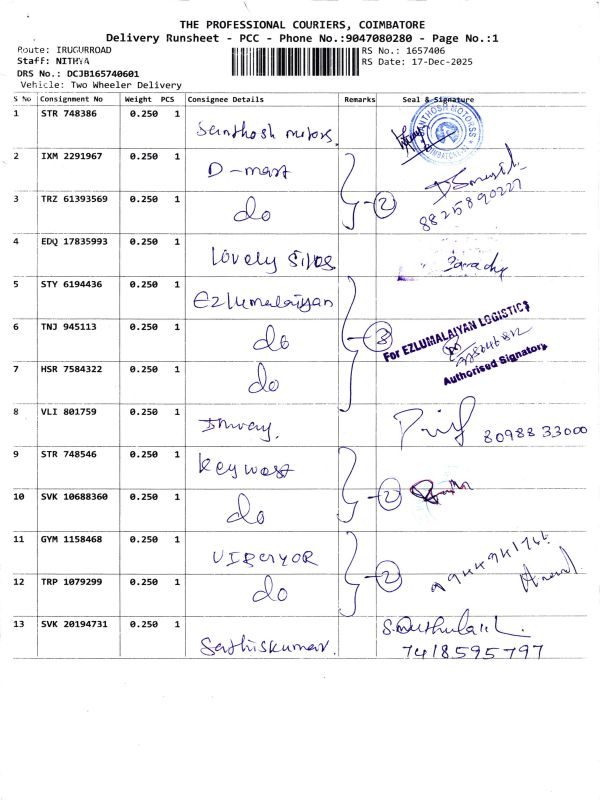 THE PROFESSIONAL COURIERS, COIMBATORE
Delivery Runsheet - PCC - Phone No.:9047080280 - Page No.:1
Route: IRUGURROAD RS No.: 1657406
Staff: NITHYA RS Date: 17-Dec-2025
DRS No.: DCJB165740601
Vehicle: Two Wheeler Delivery
S No Consignment No Weight PCS Consignee Details Remarks Seal & Signature
1 STR 748386 0.250 1 Santhosh motors.
2 IXM 2291967 0.250 1 D-mart
3 TRZ 61393569 0.250 1 do 2 8825890227
4 EDQ 17835993 0.250 1 Lovely
5 STY 6194436 0.250 1 Ezlumalaiyan
6 TNJ 945113 0.250 1 do 3 For EZLUMALAIYAN LOGISTICS
Authorised Signatory
7 HSR 7584322 0.250 1 do
8 VLI 801759 0.250 1 80988 33000
9 STR 748546 0.250 1 Keywest
10 SVK 10688360 0.250 1 do 2
11 GYM 1158468 0.250 1
12 TRP 1079299 0.250 1 do 2
13 SVK 20194731 0.250 1 Sathiskumar. 7418595797